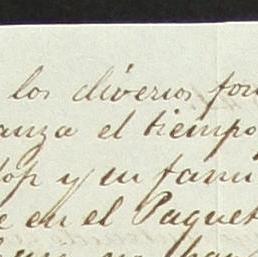 los diversos for
anza el tiempo
top y su fami
e en el Paquet